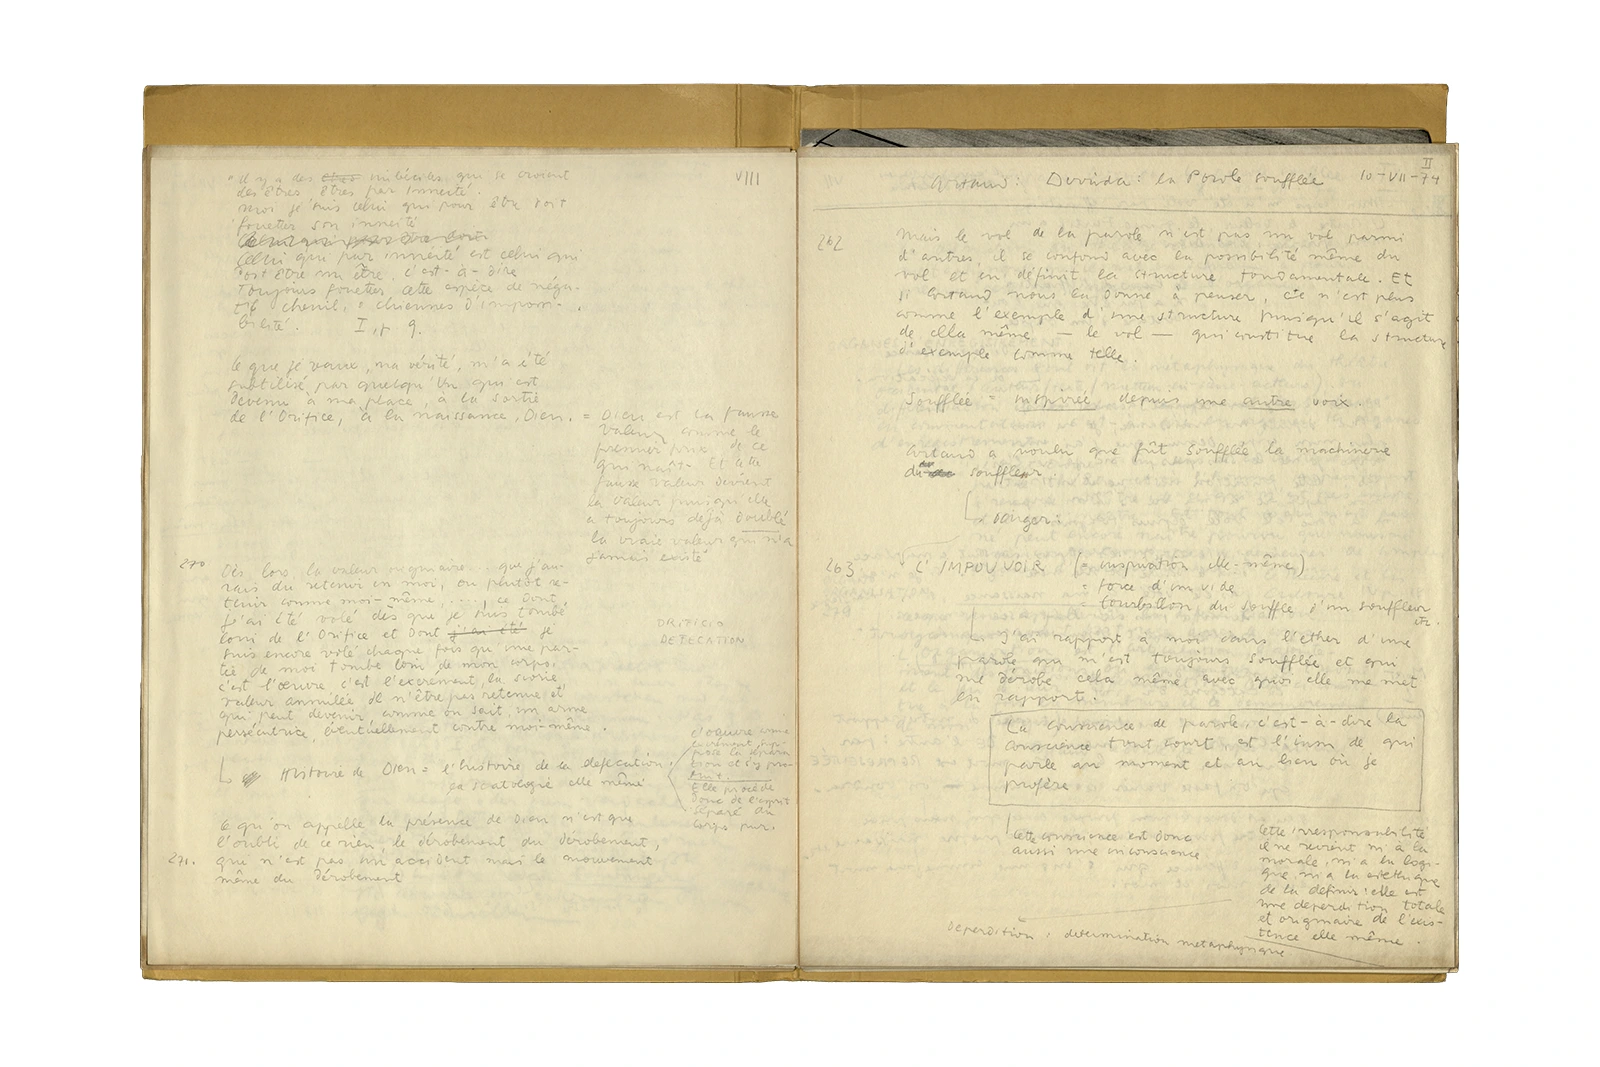 VIII
"Il y a des êtres imbéciles qui se croient
des êtres, êtres par innéité.
Moi je suis celui qui pour être doit
fouetter son innéité
Celui qui pour être doit
Celui qui par innéité est celui qui
doit être un être, c'est-à-dire
toujours fouetter cette espèce de néga-
tif chenil, ô chiennes d'impossi-
bilité. I, p 9.
Ce que je vaux, ma vérité, m'a été
subtilisé par quelqu'un qui est
devenu à ma place, à la sortie
de l'Orifice, à la naissance, Dieu. = Dieu est la fausse
valeur comme le
premier prix de ce
qui naît. Et cette
fausse valeur devient
la valeur puisqu'elle
a toujours déjà doublé
la vraie valeur qui n'a
jamais existé
270 Dès lors, la valeur originaire ... que j'au-
rais dû retenir en moi, ou plutôt re-
tenir comme moi-même, ...., ce dont
j'ai été volé dès que je suis tombé
loin de l'Orifice et dont j'ai été je
suis encore volé chaque fois qu'une par-
tie de moi tombe loin de mon corps,
c'est l'œuvre, c'est l'excrément, la scorie
valeur annulée de n'être pas retenue et
qui peut devenir, comme on sait, un arme
persécutrice, éventuellement contre moi-même.
ORIFICIO
DEFECATION
Histoire de Dieu = l'histoire de la defecation.
la scatologie elle même
l'oeuvre comme
excrément, sup-
pose la sépara-
tion et s'y pro-
duit.
Elle procède
donc de l'esprit
séparé du
corps pur.
Ce qu'on appelle la présence de Dieu n'est que
l'oubli de ce rien, le dérobement du dérobement,
271. qui n'est pas un accident mais le mouvement
même du dérobement
II
Artaud: Derrida: la Parole soufflée 10-VII-74
262 Mais le vol de la parole n'est pas un vol parmi
d'autres, il se confond avec la possibilité même du
vol et en définit la structure fondamentale. Et
si Artaud nous la donne à penser, ce n'est plus
comme l'exemple d'une structure puisqu'il s'agit
de cela même — le vol — qui constitue la structure
d'exemple comme telle.
Soufflée = inspirée depuis une autre voix
Artaud a voulu que fût soufflée la machinerie
du souffleur.
Danger:
263 L'IMPOUVOIR (= inspiration elle-même)
= force d'un vide
= tourbillon du souffle d'un souffleur
etc.
J'ai rapport à moi dans l'ether d'une
parole qui m'est toujours soufflée et qui
me dérobe cela même avec quoi elle me met
en rapport.
La conscience de parole, c'est-à-dire la
conscience tout court, est l'insu de qui
parle au moment et au lieu où je
profère
cette conscience est donc
aussi une inconscience
cette irresponsabilité
il ne revient ni à la
morale, ni à la logi-
que, ni à la esthétique
de la définir: elle est
une deperdition totale
et originaire de l'exis-
tence elle même.
Deperdition: determination metaphysique